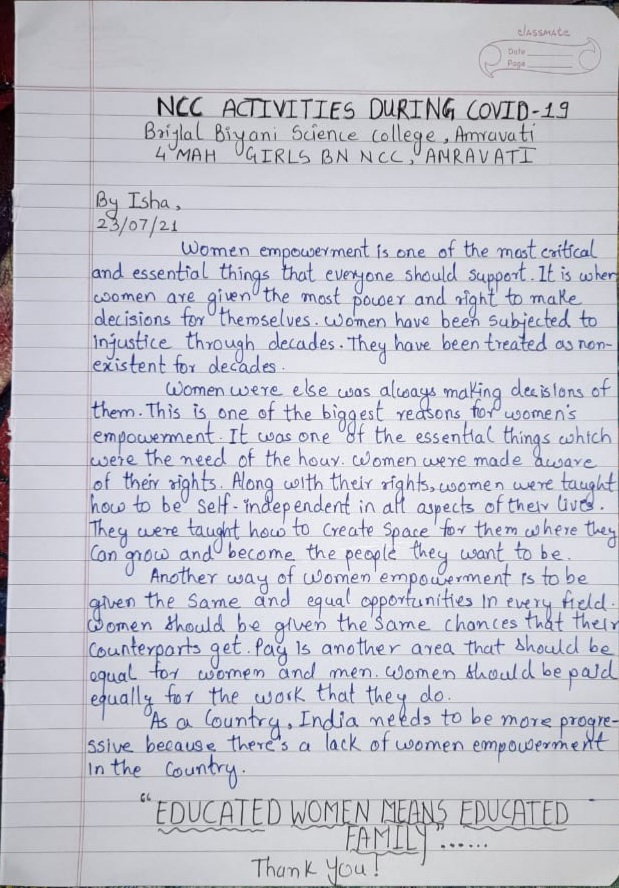 classmate
Date
Page
NCC ACTIVITIES DURING COVID-19
Brijlal Biyani Science College, Amravati
4 MAH GIRLS BN NCC, AMRAVATI
By Isha,
23/07/21
Women empowerment is one of the most critical
and essential things that everyone should support. It is when
women are given the most power and right to make
decisions for themselves. Women have been subjected to
injustice through decades. They have been treated as non-
existent for decades.
Women were else was always making decisions of
them. This is one of the biggest reasons for women's
empowerment. It was one of the essential things which
were the need of the hour. Women were made aware
of their rights. Along with their rights, women were taught
how to be self-independent in all aspects of their lives.
They were taught how to create space for them where they
can grow and become the people they want to be.
Another way of women empowerment is to be
given the same and equal opportunities in every field.
Women should be given the same chances that their
counterparts get. Pay is another area that should be
equal for women and men. Women should be paid
equally for the work that they do.
As a country, India needs to be more progre-
ssive because there's a lack of women empowerment
in the country.
"EDUCATED WOMEN MEANS EDUCATED
FAMILY"......
Thank You!